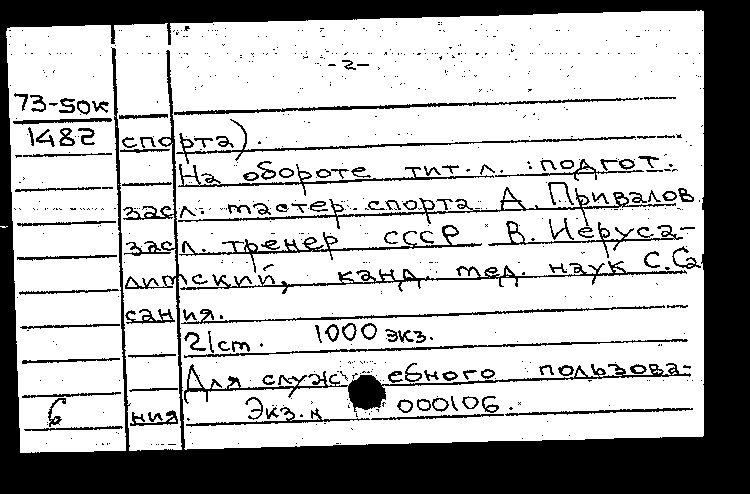 -2-
73-50к
1482 спорта).
На обороте тит.л. :подгот.
засл. мастер спорта А. Привалов,
засл. тренер СССР В. Иеруса-
лимский, канд. мед. наук С. Са
сания.
21 ст. 1000 экз.
Для служебного пользова-
6 ния. Экз. н 000106.